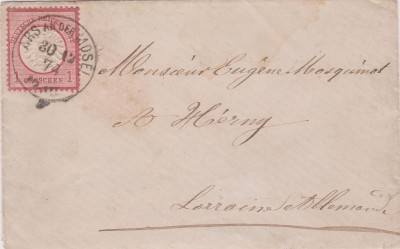 ARS AN DER MOSEL
30 12
74
1 GROSCHEN 1
Monsieur Eugène Mosquinot
A Hérny
Lorraine Allemande